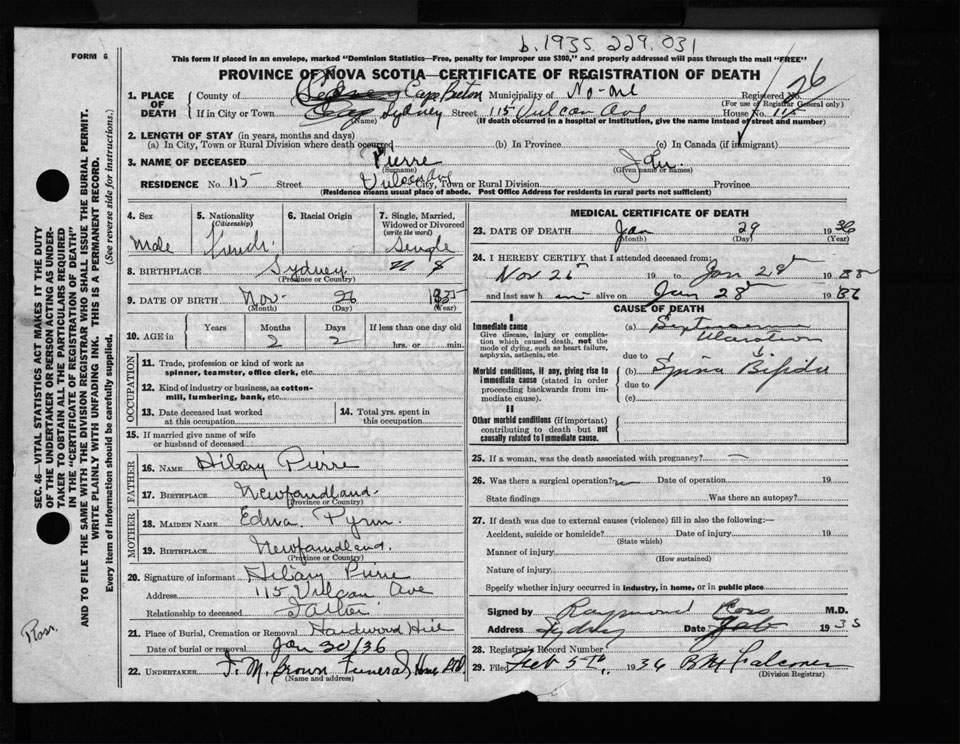 b. 1935. 229. 031
FORM 6
This form if placed in an envelope, marked "Dominion Statistics—Free, penalty for improper use $300," and properly addressed will pass through the mail "FREE"
PROVINCE OF NOVA SCOTIA—CERTIFICATE OF REGISTRATION OF DEATH
1. PLACE OF DEATH
County of Cape Breton Municipality of Registered No.
(For use of Registrar General only)
If in City or Town Sydney Street 115 Vulcan Ave House No.
(Name) (If death occurred in a hospital or institution, give the name instead of street and number)
2. LENGTH OF STAY (in years, months and days)
(a) In City, Town or Rural Division where death occurred (b) In Province (c) In Canada (if immigrant)
3. NAME OF DECEASED Pierre
(Surname) (Given name or names)
RESIDENCE No. 115 Street Vulcan Ave City, Town or Rural Division Province
(Residence means usual place of abode. Post Office Address for residents in rural parts not sufficient)
4. Sex Male
5. Nationality (Citizenship) French
6. Racial Origin
7. Single, Married, Widowed or Divorced (write the word) Single
8. BIRTHPLACE Sydney N S
(Province or Country)
9. DATE OF BIRTH Nov 26 1935
(Month) (Day) (Year)
10. AGE in Years Months Days If less than one day old
2 2 hrs. or min.
OCCUPATION
11. Trade, profession or kind of work as spinner, teamster, office clerk, etc.
12. Kind of industry or business, as cotton-mill, lumbering, bank, etc.
13. Date deceased last worked at this occupation
14. Total yrs. spent in this occupation
15. If married give name of wife or husband of deceased
FATHER
16. NAME Hilary Pierre
17. BIRTHPLACE Newfoundland
(Province or Country)
MOTHER
18. MAIDEN NAME Edna
19. BIRTHPLACE Newfoundland
(Province or Country)
20. Signature of informant Hilary Pierre
Address 115 Vulcan Ave
Relationship to deceased Father
21. Place of Burial, Cremation or Removal Hardwood Hill
Date of burial or removal Jan 30/36
22. UNDERTAKER F. M. Brown Funeral Home Ltd
(Name and address)
MEDICAL CERTIFICATE OF DEATH
23. DATE OF DEATH Jan 29 1936
(Month) (Day) (Year)
24. I HEREBY CERTIFY that I attended deceased from:
Nov 26 19 to Jan 28th 19
and last saw him alive on Jan 28th 19
CAUSE OF DEATH
I
Immediate cause
Give disease, injury or complication which caused death, not the mode of dying, such as heart failure, asphyxia, asthenia, etc.
(a) Ulceration
due to
Morbid conditions, if any, giving rise to immediate cause (stated in order proceeding backwards from immediate cause).
(b) Spina Bifida
due to
(c)
II
Other morbid conditions (if important) contributing to death but not causally related to immediate cause.
25. If a woman, was the death associated with pregnancy? —
26. Was there a surgical operation? no Date of operation 19
State findings Was there an autopsy?
27. If death was due to external causes (violence) fill in also the following:—
Accident, suicide or homicide? Date of injury 19
(State which)
Manner of injury
(How sustained)
Nature of injury
Specify whether injury occurred in industry, in home, or in public place
Signed by Raymond Ross M.D.
Address Sydney Date Feb 1935
28. Registrar's Record Number
29. Filed Feb 5th 1936 Falconer
(Division Registrar)
SEC. 46—VITAL STATISTICS ACT MAKES IT THE DUTY OF THE UNDERTAKER OR PERSON ACTING AS UNDERTAKER TO OBTAIN ALL THE PARTICULARS REQUIRED IN THE "CERTIFICATE OF REGISTRATION OF DEATH"
AND TO FILE THE SAME WITH THE DIVISION REGISTRAR WHO SHALL ISSUE THE BURIAL PERMIT.
WRITE PLAINLY WITH UNFADING INK. THIS IS A PERMANENT RECORD.
Every item of information should be carefully supplied. (See reverse side for instructions.)
Ross.